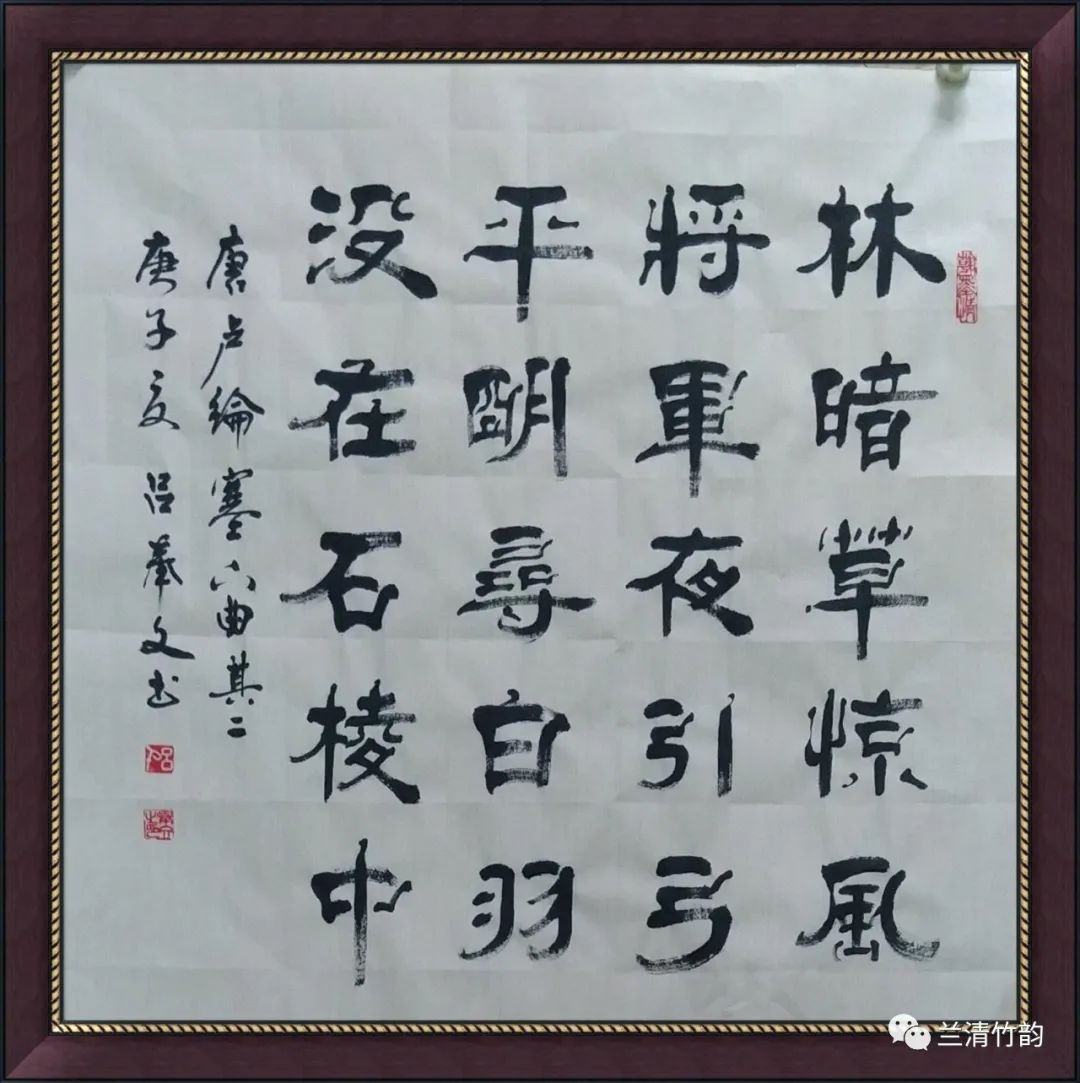 林暗草惊風
將軍夜引弓
平明尋白羽
没在石棱中
唐卢綸塞六曲其二
庚子夏 吕奉文书
兰清竹韵